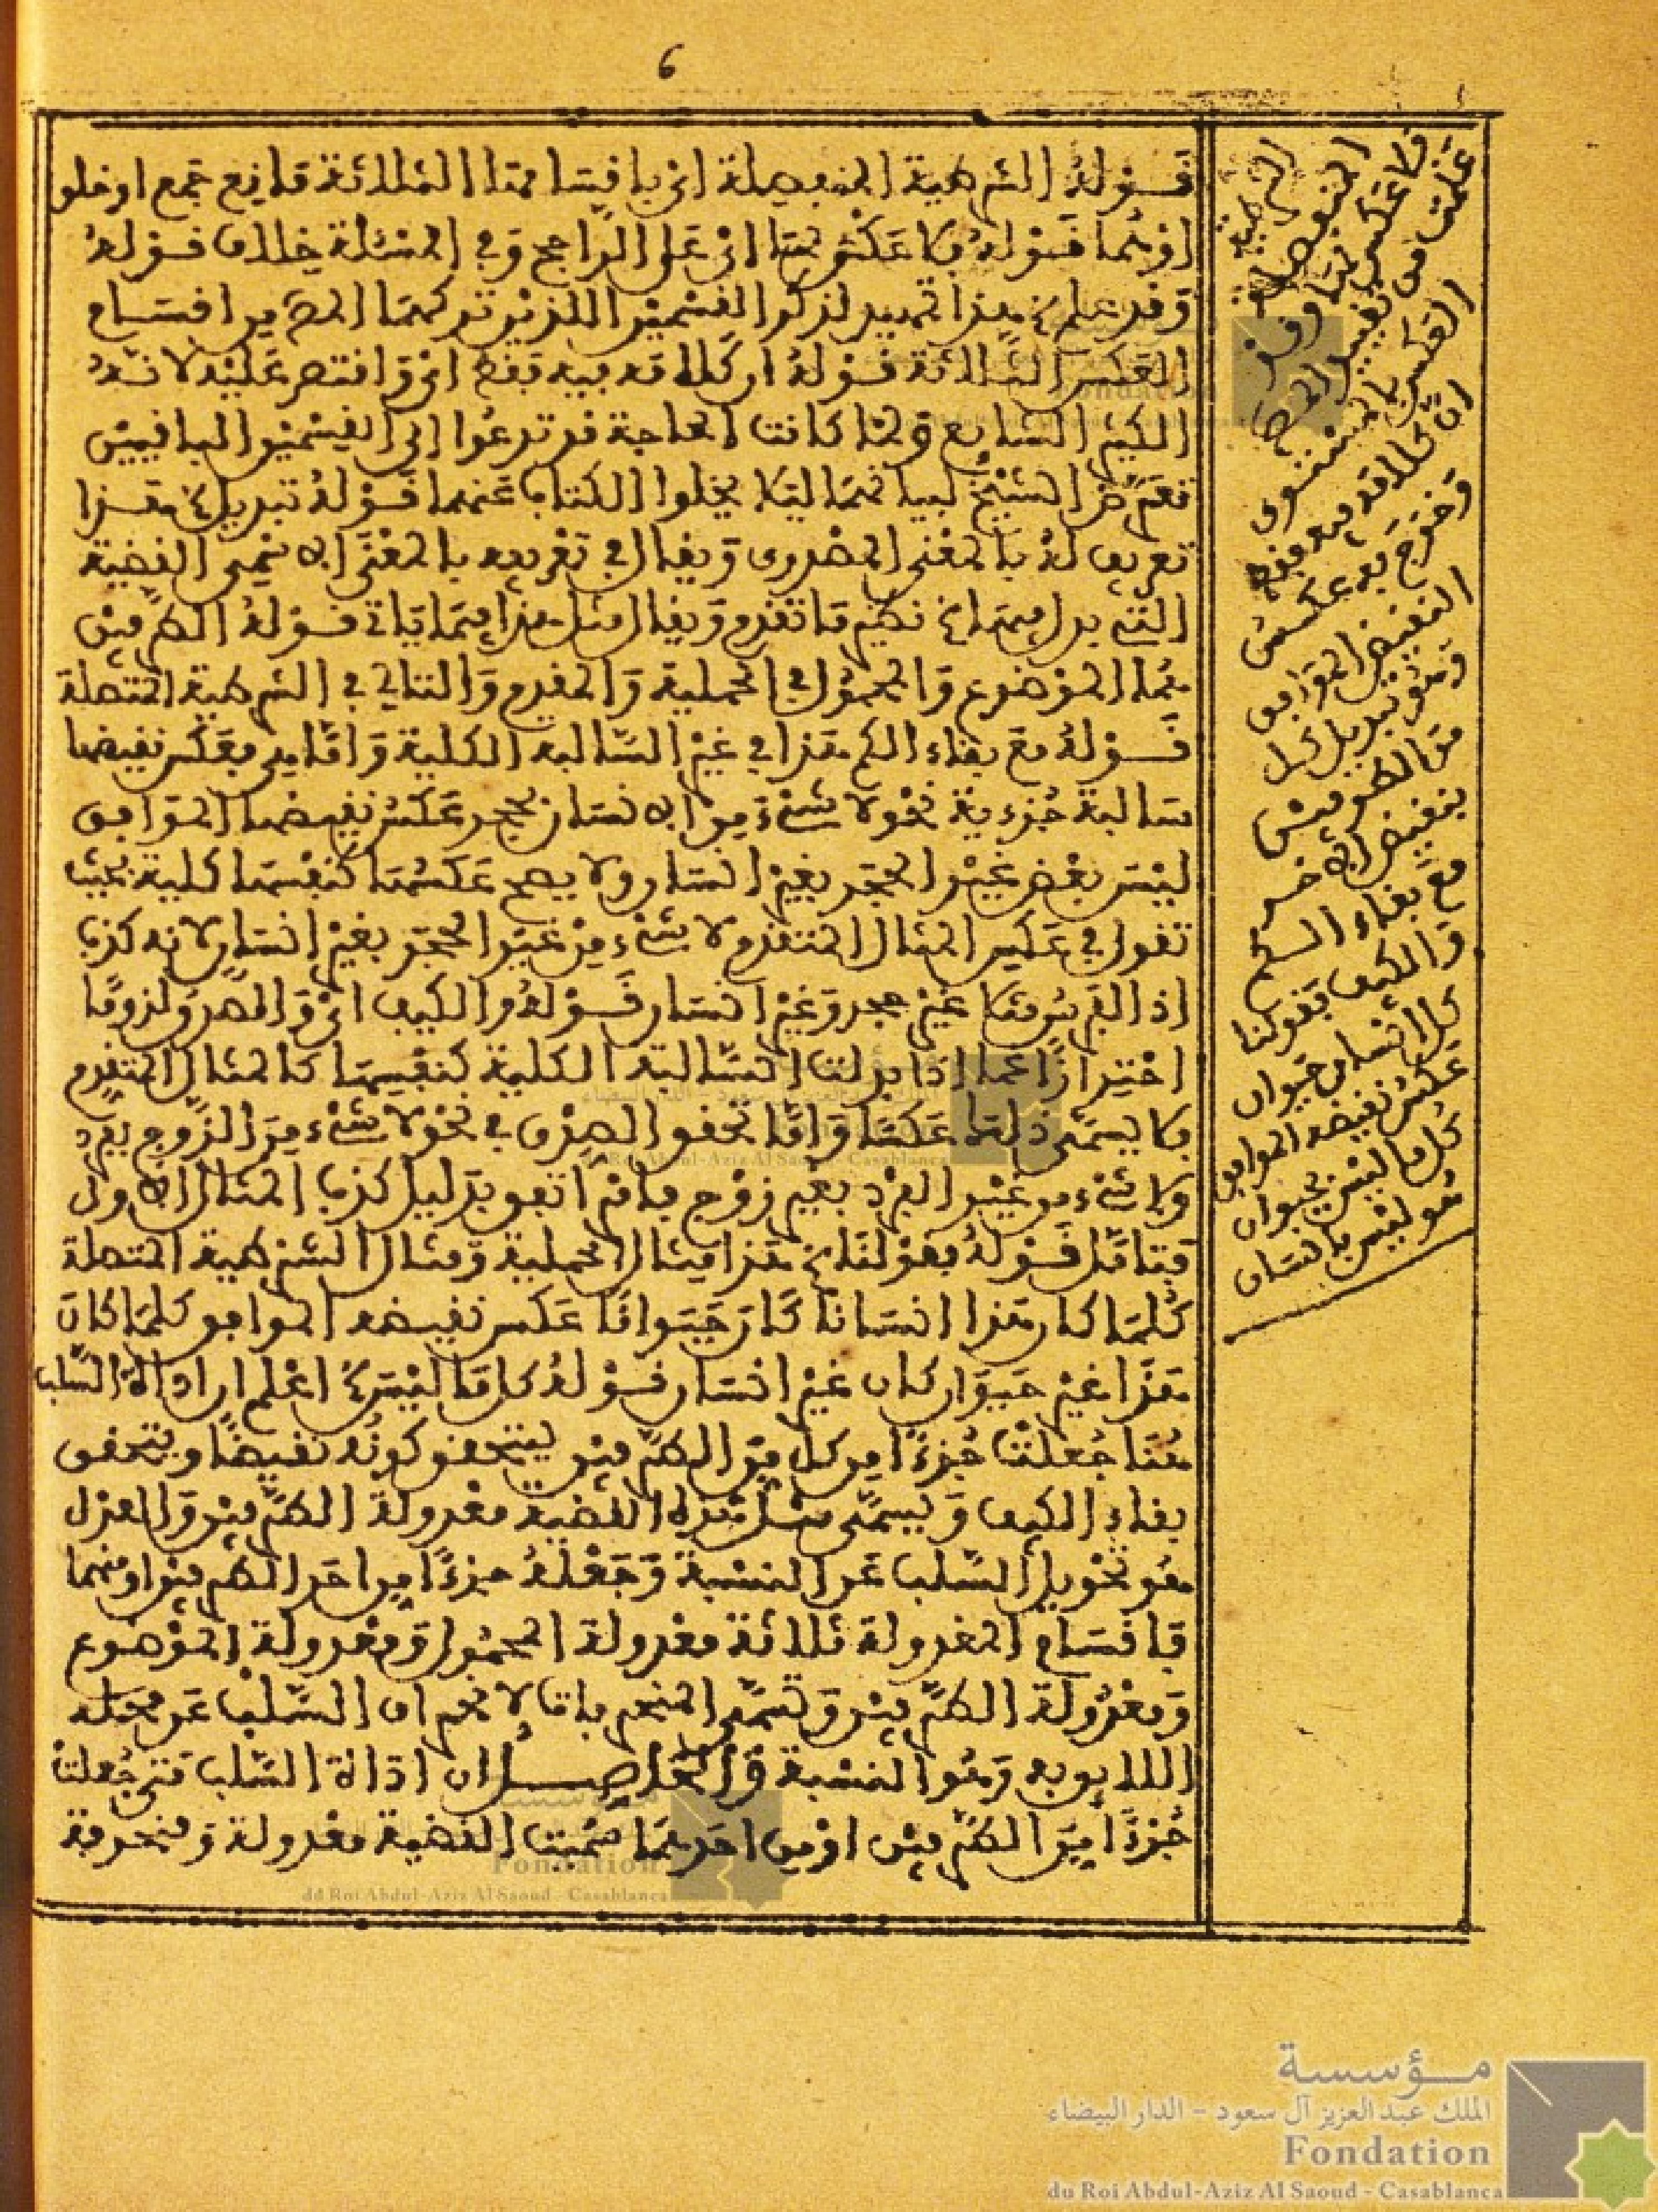 6
قوله الشرطية المنفصلة اي باقسامها الثلاثة مانع جمع او خلو
او هما قوله فلا عكس لها اي على الراجح وفي المسئلة خلاف قوله
وقد علم الخ هذا تمهيد لذكر القسمين اللذين تركهما المص من اقسام
العكس الثلاثة قوله ان كلامه فيه فقط اي واقتصر عليه لانه
الكثير الشايع ولما كانت الحاجة قد تدعوا الى القسمين الباقيين
تعرض الشيخ لبيانهما ليلا يخلوا الكتاب عنهما قوله تبديل الخ هذا
تعريف له بالمعنى المصدري ويقال في تعريفه بالمعنى الاسمى القضية
التي بدل فيها الخ نظير ما تقدم ويقال مثل هذا فيما ياتي قوله الطرفين
هما الموضوع والمحمول في الحملية والمقدم والتالي في الشرطية المتصلة
قوله مع بقاء الكم هذا في غير السالبة الكلية واما هي فعكس نقيضها
سالبة جزءية نحو لا شيء من الانسان بحجر عكس نقيضها الموافق
ليس بعض غير الحجر بغير انسان ولا يصح عكسها كنفسها كلية بحيث
تقول في عكس المثال المتقدم لا شيء من غير الحجر بغير انسان لانه كذب
اذ الفرس مثلا غير حجر وغير انسان قوله والكيف اي والصدق لزوما
احترازا عما اذا بدلت السالبة الكلية كنفسها كالمثال المتقدم
فلا يسمى ذلك عكسا واما تحقق الصدق في نحو لا شيء من الزوج بفرد
ولا شيء من غير الفرد بغير زوج فامر اتفق بدليل كذب المثال الاول
فتامل قوله فقولنا الخ هذا مثال الحملية ومثال الشرطية المتصلة
كلما كان هذا انسانا كان حيوانا عكس نقيضه الموافق كلما كان
هذا غير حيوان كان غير انسان قوله كل ما ليس الخ اعلم ان اداة السلب
هنا جعلت جزءا من كل من الطرفين ليتحقق كونه نقيضا ويتحقق
بقاء الكيف ويسمى مثل هذه القضية معدولة الطرفين والعدل
هو تحويل السلب عن النسبة وجعله جزءا من احد الطرفين او منهما
فاقسام المعدولة ثلاثة معدولة المحمول ومعدولة الموضوع
ومعدولة الطرفين وتسمى المنحرفات لانحراف السلب عن محله
اللايق به وهو النسبة والحاصل ان اداة السلب متى جعلت
جزءا من الطرفين او من احدهما سميت القضية معدولة ومنحرفة
الشرطية
المنفصلة
فلا عكس لها وقد
علمت من تقييد المص
العكس بالمستوى
ان كلامه فيه فقط
وخرج به عكس
النقيض الموافق
وهو تبديل كل
من الطرفين
بنقيض الاخر
مع بقاء الكم
والكيف فقولنا
كل انسان حيوان
عكس نقيضه الموافق
كل ما ليس بحيوان
هو ليس بانسان
مؤسسة
الملك عبد العزيز آل سعود – الدار البيضاء
Fondation
du Roi Abdul-Aziz Al Saoud - Casablanca